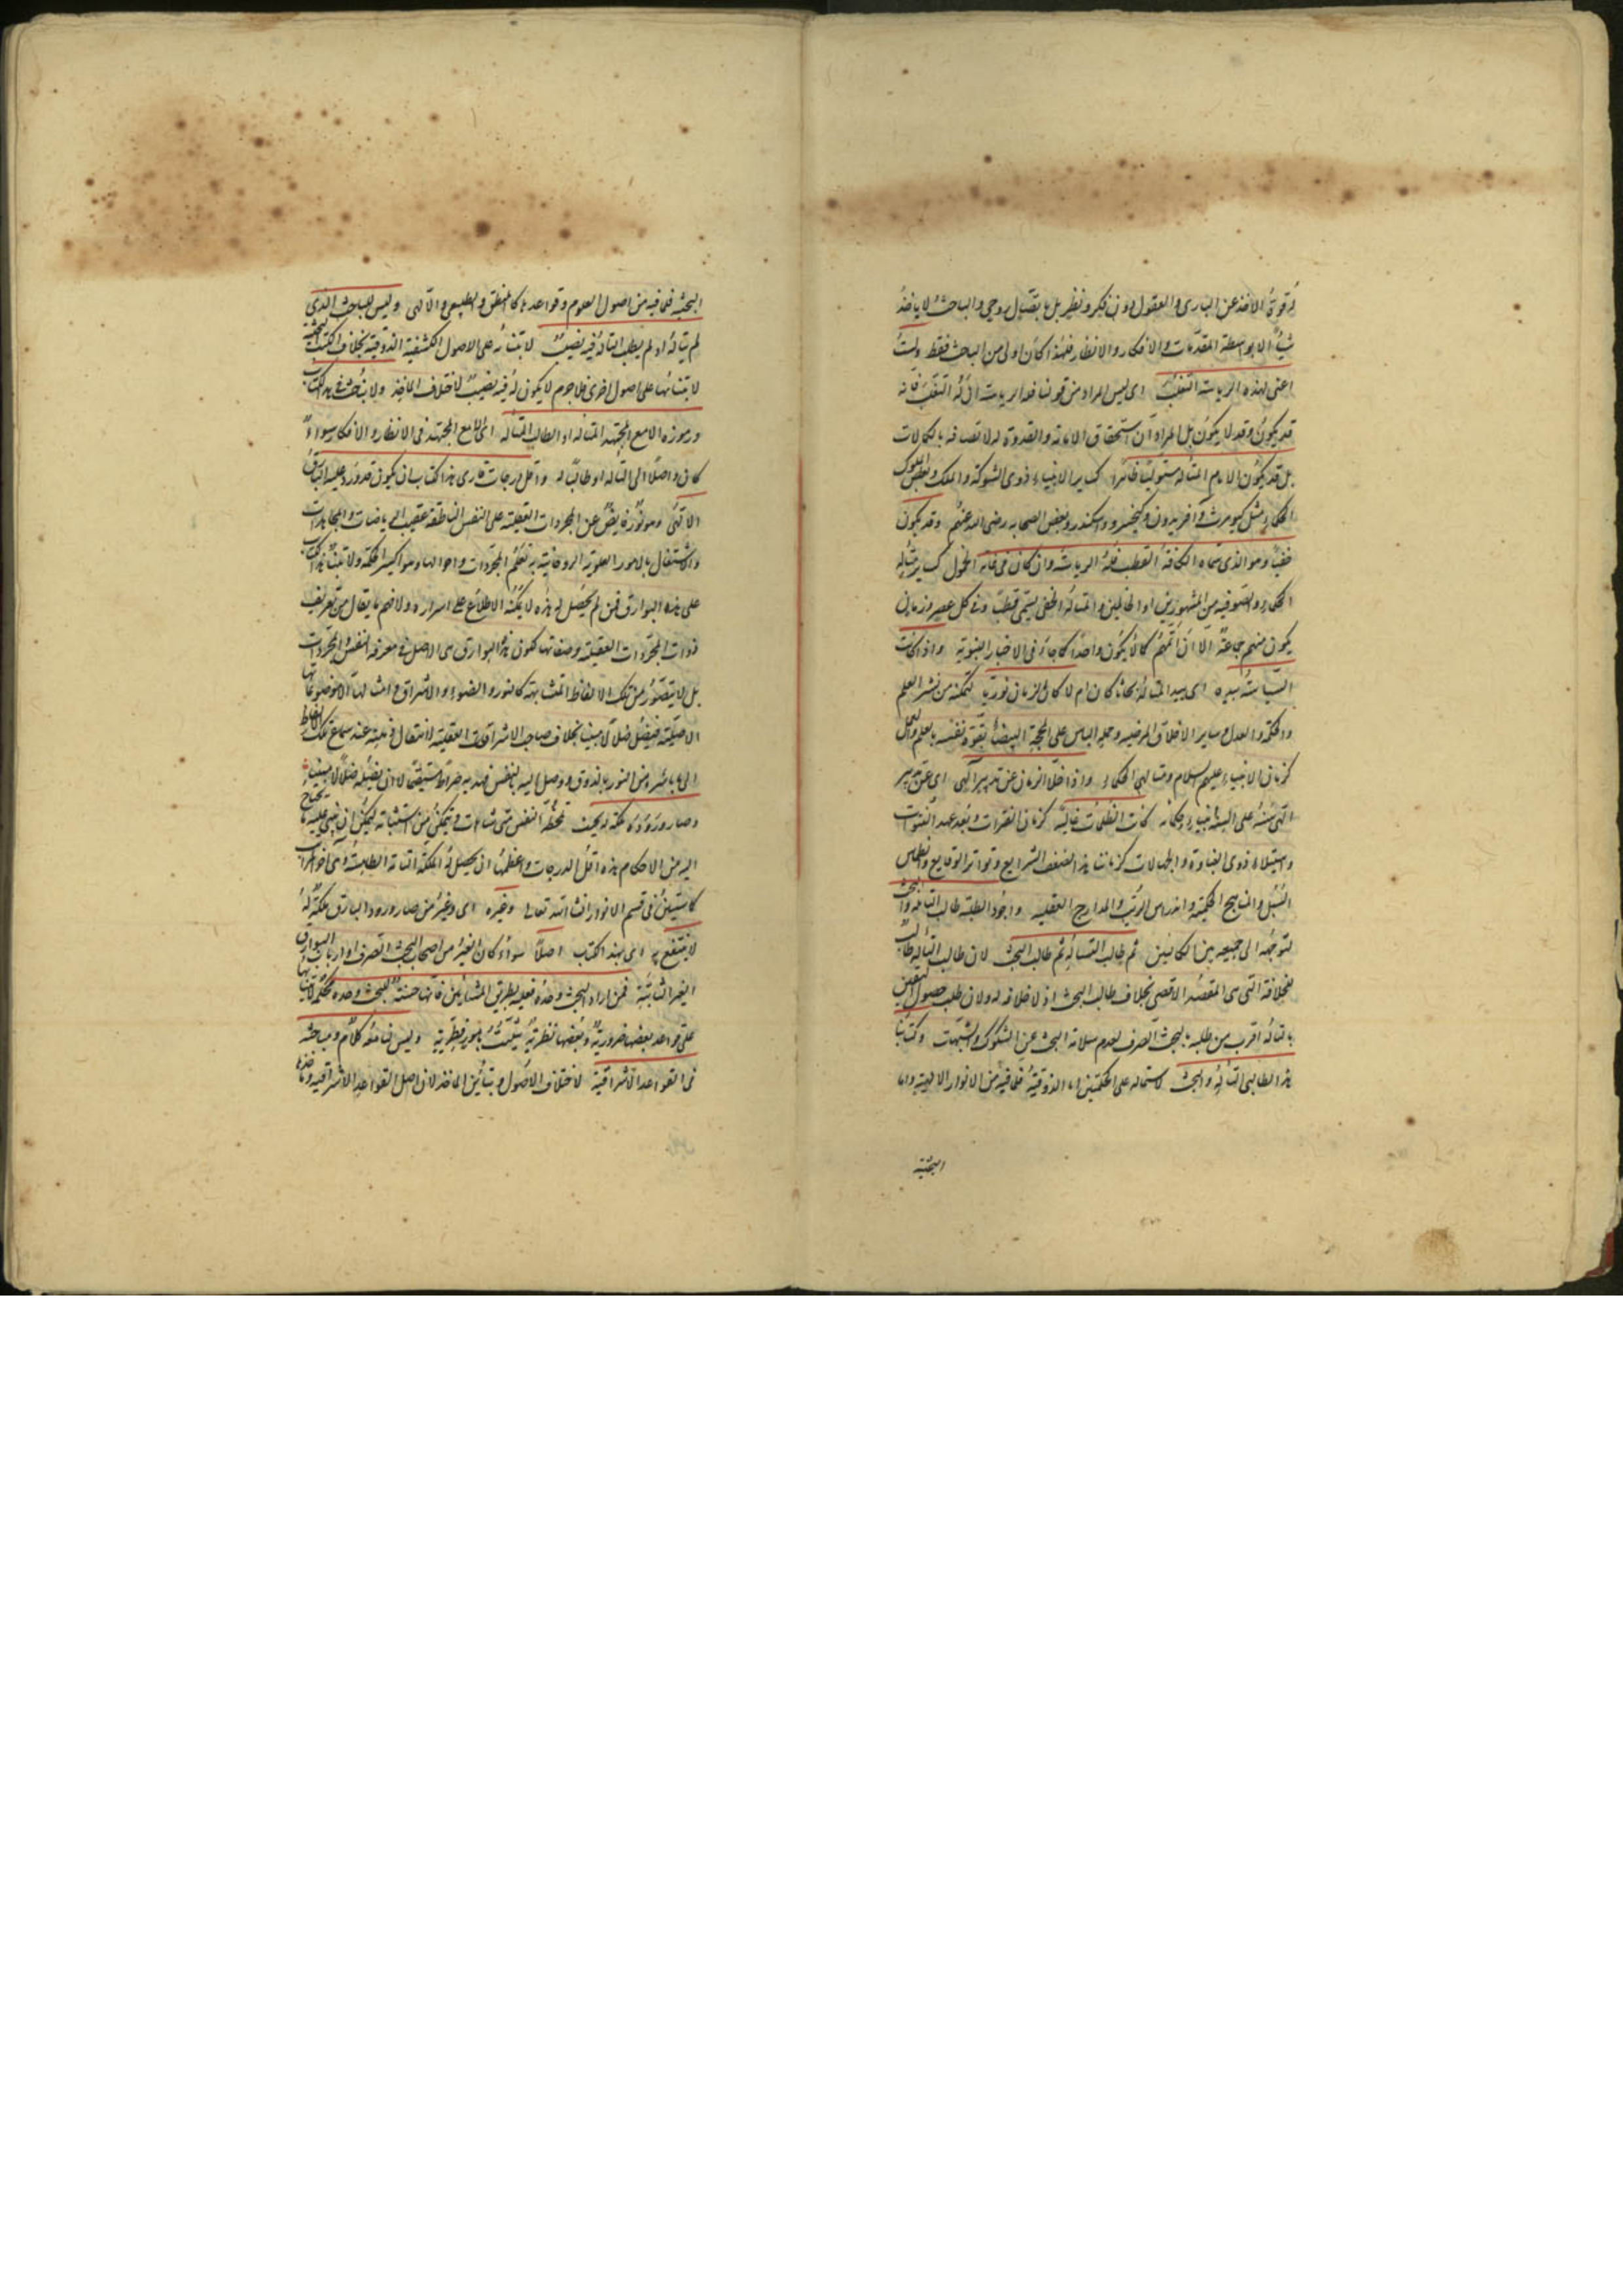 له قوة الاخذ عن البارى والعقول دون فكر ونظر بل باتصال روحى والباحث لا ياخذ
شيئا الا بواسطة المقدمات والافكار والانظار فلهذا كان اولى من الباحث فقط ولست
اعنى بهذه الرياسة التغلب اى ليس المراد من قولنا فله الرياسة ان له التغلب فانه
قد يكون وقد لا يكون بل المراد ان استحقاق الامامة والقدوة له لاتصافه بالكمالات
بل قد يكون الامام المتأله مستوليا ظاهرا كساير الانبياء ذوى الشوكة والملك وبعض الملوك
الحكماء مثل كيومرث وافريدون وكيخسرو واسكندر وبعض الصحابه رضى الله عنهم وقد يكون
خفيا وهو الذى سماه الكافة القطب فله الرياسة وان كان فى غاية الخمول كساير متألهى
الحكماء والصوفيه من المشهورين او الخاملين والمتأله الخفى يسمى قطبا وفى كل عصر وزمان
يكون منهم جماعة الا ان اتمهم كمالا يكون واحدا كما جاء فى الاخبار النبوية واذا كانت
السياسة بيده اى بيد المتأله كان الزمان نوريا لتمكنه من نشر العلم
والحكمة والعدل وساير الاخلاق المرضيه وحمله الناس على المحجة البيضاء بقوة نفسه بالعلم والعمل
كزمان الانبياء عليهم السلام ومتألهى الحكماء واذا خلا الزمان عن تدبير الهى اى عن تدبير
الهى كانت الظلمات غالبة كزمان الفترات وبعد عهد النبوات
واستيلاء ذوى الغباوة والجهالات كزماننا هذا لضعف الشرايع وتواتر الوقايع وانطماس
السبل والمناهج الحكمية واندراس الرتب والمدارج العقليه واجود الطلبة طالب التأله والبحث
لتوجهه الى جميعه بين الكمالين ثم طالب التأله ثم طالب البحث لان طالب التأله طالب
لخلافة التى هى المقصد الاقصى بخلاف طالب البحث اذ لا خلافة له ولان طلب حصول اليقين
بالتأله اقرب من طلبه بالبحث الصرف لعدم سلامة البحث عن الشكوك والشبهات وكتابنا
هذا لطالبى التأله والبحث لاشتماله على الحكمتين اما الذوقية فلما فيه من الانوار الالهية واما
البحثية
البحثيه فلما فيه من اصول العلوم وقواعدها كالمنطق والطبيعى والالهى وليس للباحث الذى
لم يتأله او لم يطلب التأله فيه نصيب لابتنائه على الاصول الكشفية الذوقية بخلاف الكتب البحثية
لابتنائها على اصول اخرى فلا جرم لا يكون له فيه نصيب لاختلاف الماخذ ولا نباحث فى هذا الكتاب
ورموزه الا مع المجتهد المتأله او الطالب للتأله اى الا مع المجتهد فى الانظار والافكار سواء
كان واصلا الى التأله او طالبا له واقل درجات قارى هذا الكتاب ان يكون قد ورد عليه البارق
الالهى وهو نور فايض عن المجردات العقلية على النفس الناطقة عقيب الرياضات والمجاهدات
والاشتغال بالامور العلوية الروحانية به تعلم المجردات واحوالها وهو اكسير الحكمة ولابتناء هذا الكتاب
على هذه البوارق فمن لم يحصل له هذه لا يمكنه الاطلاع على اسراره ولا فهم ما يقال من تعريف
ذوات المجردات العقلية وصفاتها لكون هذه البوارق هى الاصل فى معرفة النفس والمجردات
بل لا يتصور من تلك الالفاظ المتشابهة كالنور والضوء والاشراق وامثالها الا موضوعاتها
الاصلية فيضل ضلالا مبينا بخلاف صاحب الاشراقات العقلية لانتقال ذهنه عند سماع تلك الالفاظ
الى ما باشره من النور بالذوق ووصل اليه بالنفس فهديه صراطا مستقيما لا ان يضله ضلالا مبينا
وصار وروده ملكة له بحيث تحظه النفس متى شاءت ويتمكن من استثباته ليمكن ان يبنى عليه ما يحتاج
اليه من الاحكام هذه اقل الدرجات واعظمها ان يحصل له الملكة التامة الطامسة وهى اخرها
كما ستبين فى قسم الانوار ان شاء الله تعالى وغيره اى وغير من صار ورود البارق ملكة له
لا ينتفع به اى بهذا الكتاب اصلا سواء كان الغير من اصحاب البحث الصرف او ارباب البوارق
الغير الثابتة فمن اراد البحث وحده فعليه بطريق المشائين فانها حسنة للبحث وحده محكمة لابتنائها
على قواعد بعضها ضرورية وبعضها نظرية مثبتة بامور فطرية وليس لنا معه كلام ومباحثة
فى القواعد الاشراقية لاختلاف الاصول وتباين الماخذ لان اصل القواعد الاشراقيه وماخذها